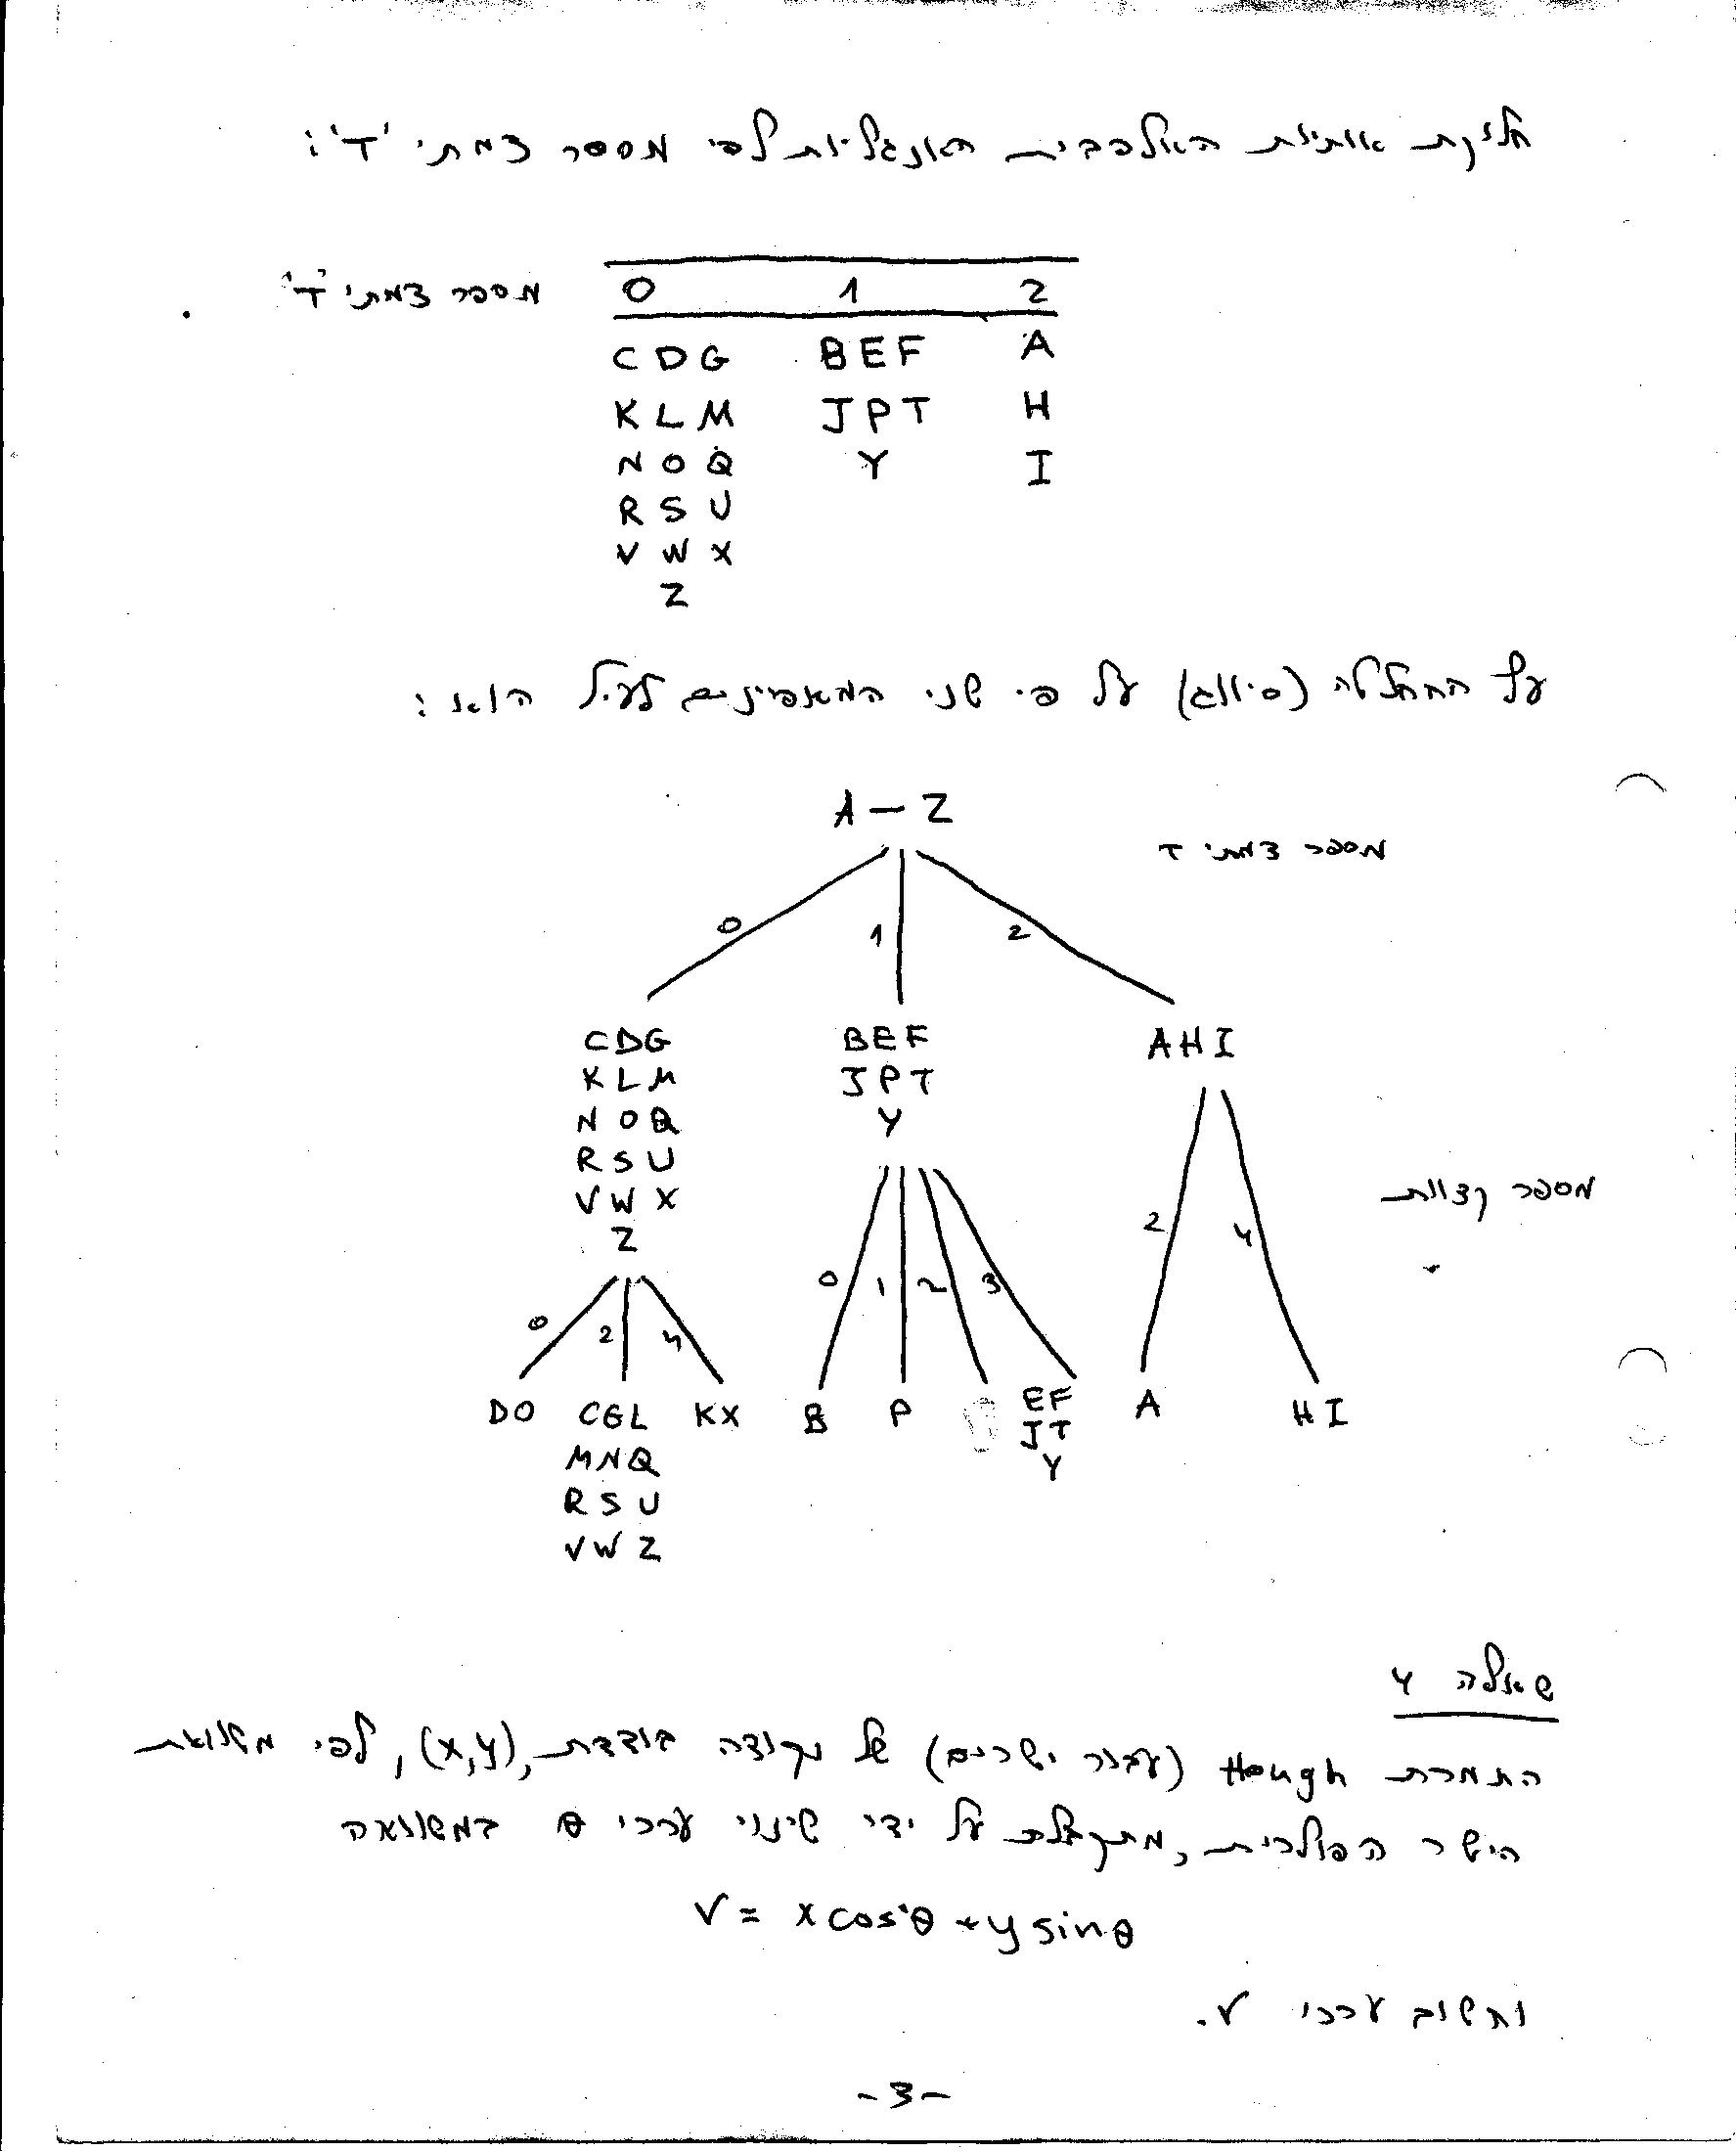 חלוקת אותיות האלפבית האנגליות לפי מספר צמתי 'T':
מספר צמתי 'T' 0 1 2
CDG BEF A
KLM JPT H
NOQ Y I
RSU
VWX
Z
עץ ההחלטה (סיווג) על פי שני המאפינים לעיל הוא:
A – Z
מספר צמתי T
0 1 2
CDG BEF AHI
KLM JPT
NOQ Y
RSU
VWX
Z
מספר קצוות
0 2 4 0 1 2 3 2 4
DO CGL KX B P EF A HI
MNQ JT
RSU Y
VWZ
שאלה 4
התמרת Hough (עבור ישרים) של נקודה בודדת, (x,y), לפי משוואת
הישר הפולרית, מתקבלת על ידי שינוי ערכי θ במשוואה
r = x cosθ + y sinθ
וחשוב ערכי r.
-3-